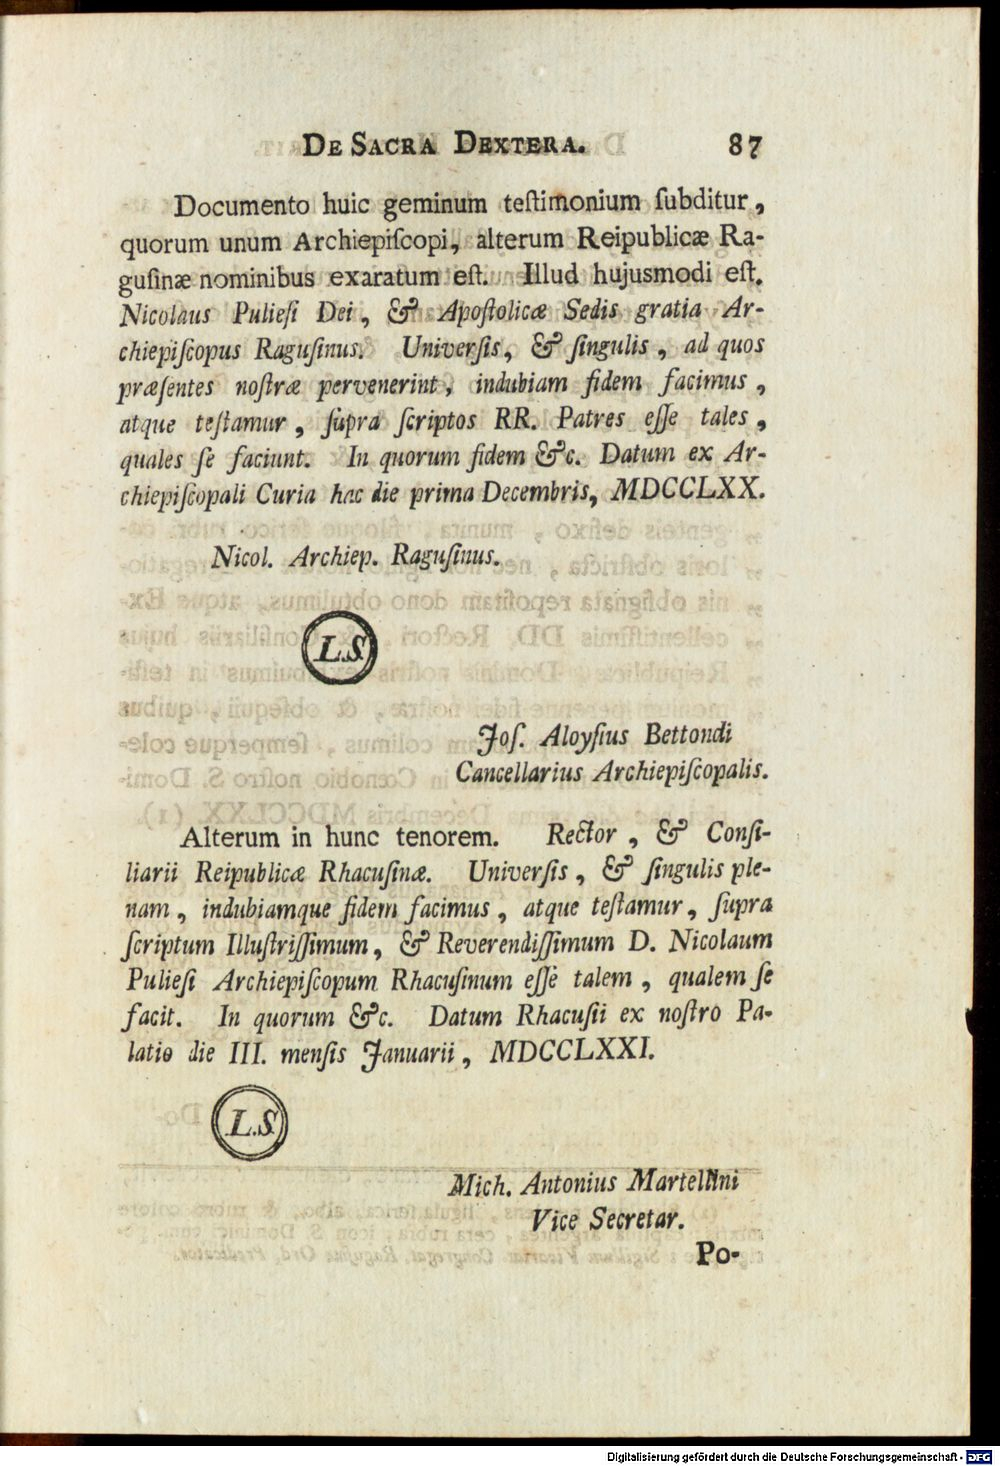 De Sacra Dextera. 87
Documento huic geminum teſtimonium ſubditur,
quorum unum Archiepiſcopi, alterum Reipublicæ Ra-
guſinæ nominibus exaratum eſt. Illud hujusmodi eſt.
Nicolaus Pulieſi Dei, & Apoſtolicæ Sedis gratia Ar-
chiepiſcopus Raguſinus. Univerſis, & ſingulis, ad quos
præſentes noſtræ pervenerint, indubiam fidem facimus,
atque teſtamur, ſupra ſcriptos RR. Patres eſſe tales,
quales ſe faciunt. In quorum fidem &c. Datum ex Ar-
chiepiſcopali Curia hac die prima Decembris, MDCCLXX.
Nicol. Archiep. Raguſinus.
L.S.
Joſ. Aloyſius Bettondi
Cancellarius Archiepiſcopalis.
Alterum in hunc tenorem. Rector, & Conſi-
liarii Reipublicæ Rhacuſinæ. Univerſis, & ſingulis ple-
nam, indubiamque fidem facimus, atque teſtamur, ſupra
ſcriptum Illuſtriſſimum, & Reverendiſſimum D. Nicolaum
Pulieſi Archiepiſcopum Rhacuſinum eſſe talem, qualem ſe
facit. In quorum &c. Datum Rhacuſii ex noſtro Pa-
latio die III. menſis Januarii, MDCCLXXI.
L.S.
Mich. Antonius Martellini
Vice Secretar.
Po-
Digitalisierung gefördert durch die Deutsche Forschungsgemeinschaft - DFG